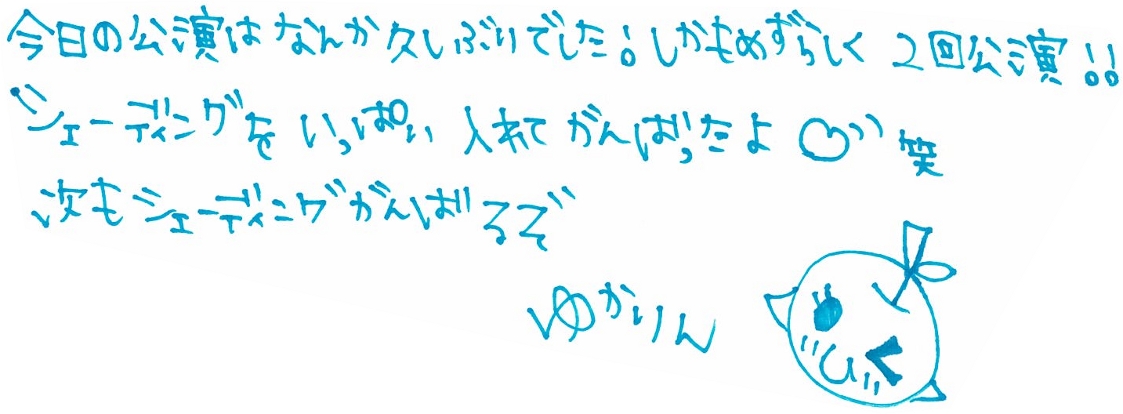 今日の公演はなんか久しぶりでした!しかもめずらしく2回公演!!
シェーディングをいっぱい入れてがんばったよ 笑
次もシェーディングがんばるぞ
ゆかりん